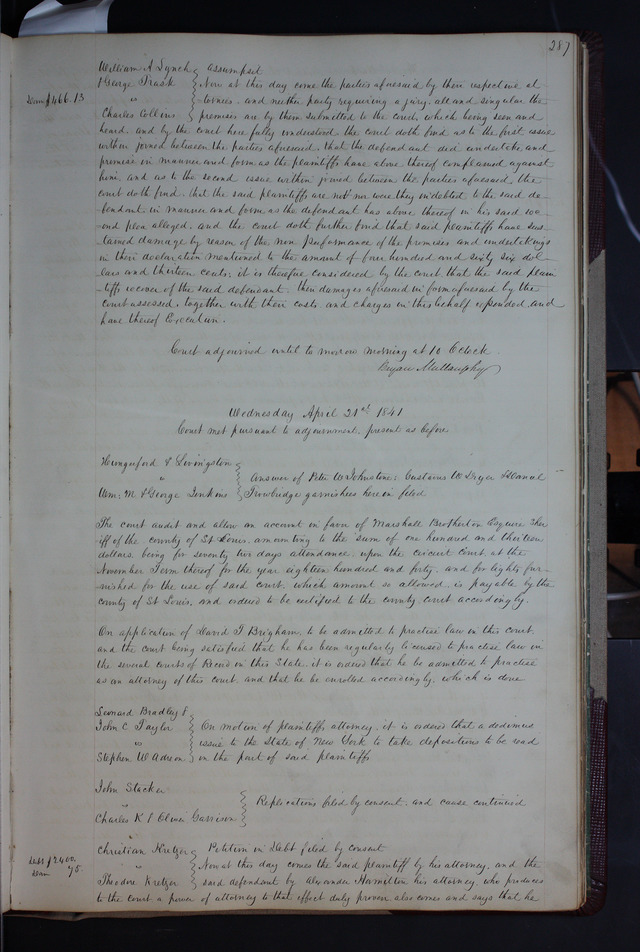 287
William A Lynch } Assumpsit
& George Trask } Now at this day come the parties aforesaid by their respective at
Dam $466.13
vs } tornies, and neither party requiring a jury, all and singular the
Charles Collins } premises are by them submitted to the court, which being seen and
heard, and by the court here fully understood the court doth find as to the first issue
within joined between the parties aforesaid, that the defendant did undertake and
promise in manner and form as the plaintiffs have above thereof complained against
him, and as to the second issue within joined between the parties aforesaid, the
court doth find, that the said plaintiffs are not nor were they indebted to the said de-
fendant in manner and form as the defendant has above thereof in his said sec-
-ond plea alleged, and the court doth further find that said plaintiffs have sus-
tained damage by reason of the non performance of the promises and undertakings
in their declaration mentioned to the amount of four hundred and sixty six dol-
lars and thirteen cents; it is therefore considered by the court that the said plain
-tiffs recover of the said defendant, their damages aforesaid in form aforesaid by the
court assessed, together with their costs and charges in this behalf expended, and
have thereof Execution.
Court adjourned until to morrow morning at 10 Oclock.
Bryan Mullanphy
Wednesday April 21st 1841
Court met pursuant to adjournment, present as before
Hungerford & Livingston }
vs } Answer of Peter W Johnstone; Gustavus W Dryer & Daniel
Wm: M. & George Jenkins } Trowbridge garnishees herein filed
The court audit and allow an account in favor of Marshall Brotherton Esquire Sher
iff of the county of St Louis, amounting to the sum of one hundred and thirteen
dollars, being for seventy two days attendance, upon the circuit court, at the
November Term thereof for the year eighteen hundred and forty, and for lights fur-
nished for the use of said court, which amount so allowed, is payable by the
county of St Louis, and ordered to be certified to the county court accordingly.
On application of David T Brigham, to be admitted to practise law in this court,
and the court being satisfied that he has been regularly licensed to practise law in
the several courts of Record in this State, it is ordered that he be admitted to practise
as an attorney of this court, and that he be enrolled accordingly, which is done
Leonard Bradley &
John C Taylor } On motion of plaintiffs attorney, it is ordered that a dedimus
vs } issue to the State of New York to take depositions to be read
Stephen W Adreon } on the part of said plaintiffs
John Stacker
vs } Replications filed by consent, and cause continued
Charles K & Oliver Garrison
Christian Kretzer } Petition in Debt filed by consent
Debt $2400.
Dam 75.
vs } Now at this day comes the said plaintiff by his attorney, and the
Theodore Kretzer } said defendant by Alexander Hamilton his attorney who produces
to the court a power of attorney to that effect duly proven also comes and says that he